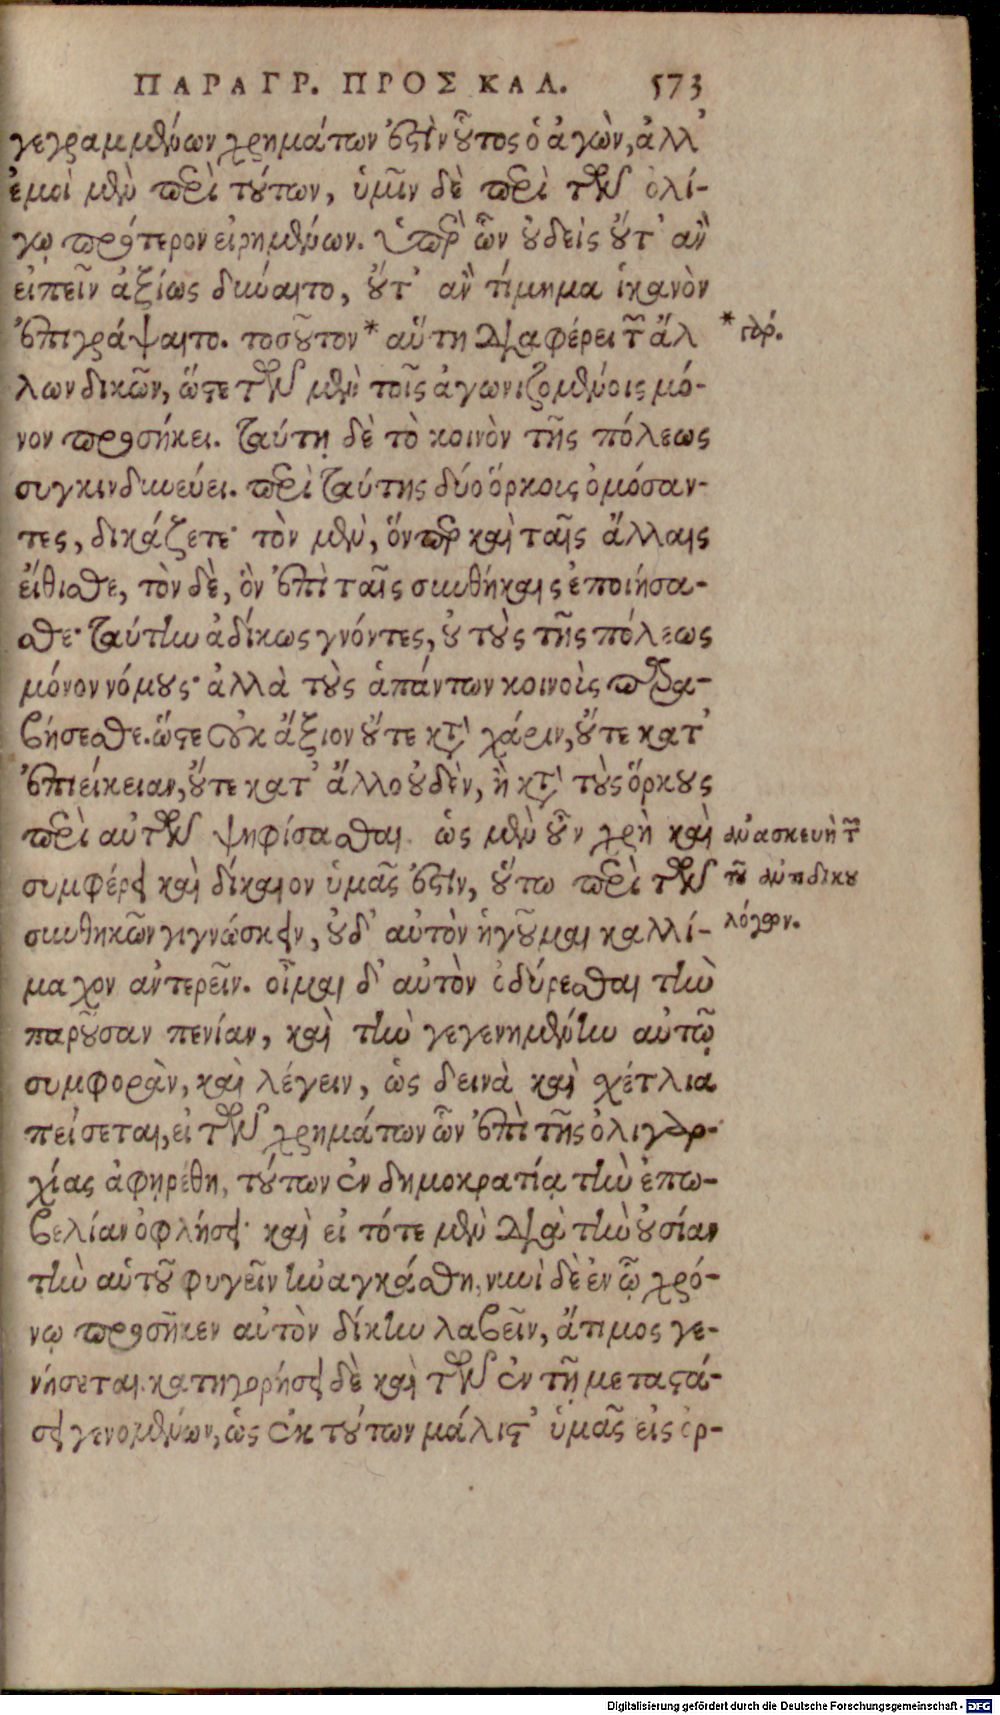 ΠΑΡΑΓΡ. ΠΡΟΣ ΚΑΛ. 573
γεγραμμένων χρημάτων ἐστὶν οὗτος ὁ ἀγὼν, ἀλλ᾽
ἐμοὶ μὲν περὶ τούτων, ὑμῖν δὲ περὶ τῶν ὀλί-
γῳ πρότερον εἰρημένων. ὑπὲρ ὧν οὐδεὶς οὔτ᾽ ἂν
εἰπεῖν ἀξίως δύναιτο, οὔτ᾽ ἂν τίμημα ἱκανὸν
ἐπιγράψαιτο. τοσοῦτον * αὕτη διαφέρει τῶν ἄλ
* γάρ.
λων δικῶν, ὥστε τῶν μὲν τοῖς ἀγωνιζομένοις μό-
νον προσήκει. ταύτῃ δὲ τὸ κοινὸν τῆς πόλεως
συγκινδυνεύει. περὶ ταύτης δύο ὅρκοις ὀμόσαν-
τες, δικάζετε· τὸν μὲν, ὅνπερ καὶ ταῖς ἄλλαις
εἴθισθε, τὸν δὲ, ὃν ἐπὶ ταῖς συνθήκαις ἐποιήσα-
σθε· ταύτην ἀδίκως γνόντες, οὐ τοὺς τῆς πόλεως
μόνον νόμους· ἀλλὰ τοὺς ἁπάντων κοινοὺς παρα-
βήσεσθε. ὥστε οὐκ ἄξιον οὔτε κατὰ χάριν, οὔτε κατ᾽
ἐπιείκειαν, οὔτε κατ᾽ ἄλλο οὐδὲν, ἢ κατὰ τοὺς ὅρκους
περὶ αὐτῶν ψηφίσασθαι. ὡς μὲν οὖν χρὴ καὶ
ἀνασκευὴ τῶν
συμφέρει καὶ δίκαιον ὑμᾶς ἐστιν, οὕτω περὶ τῶν
τοῦ ἀντιδίκου
συνθηκῶν γιγνώσκειν, οὐδ᾽ αὐτὸν ἡγοῦμαι καλλί-
λόγων.
μαχον ἀντερεῖν. οἶμαι δ᾽ αὐτὸν ὀδύρεσθαι τὴν
παροῦσαν πενίαν, καὶ τὴν γεγενημένην αὐτῷ
συμφορὰν, καὶ λέγειν, ὡς δεινὰ καὶ σχέτλια
πείσεται, εἰ τῶν χρημάτων ὧν ἐπὶ τῆς ὀλιγαρ-
χίας ἀφῃρέθη, τούτων ἐν δημοκρατίᾳ τὴν ἐπω-
βελίαν ὀφλήσει· καὶ εἰ τότε μὲν διὰ τὴν οὐσίαν
τὴν αὑτοῦ φυγεῖν ἠναγκάσθη, νυνὶ δὲ ἐν ᾧ χρό-
νῳ προσῆκεν αὐτὸν δίκην λαβεῖν, ἄτιμος γε-
νήσεται. κατηγορήσει δὲ καὶ τῶν ἐν τῇ μεταστά-
σει γενομένων, ὡς ἐκ τούτων μάλιστ᾽ ὑμᾶς εἰς ὀρ-
Digitalisierung gefördert durch die Deutsche Forschungsgemeinschaft - DFG